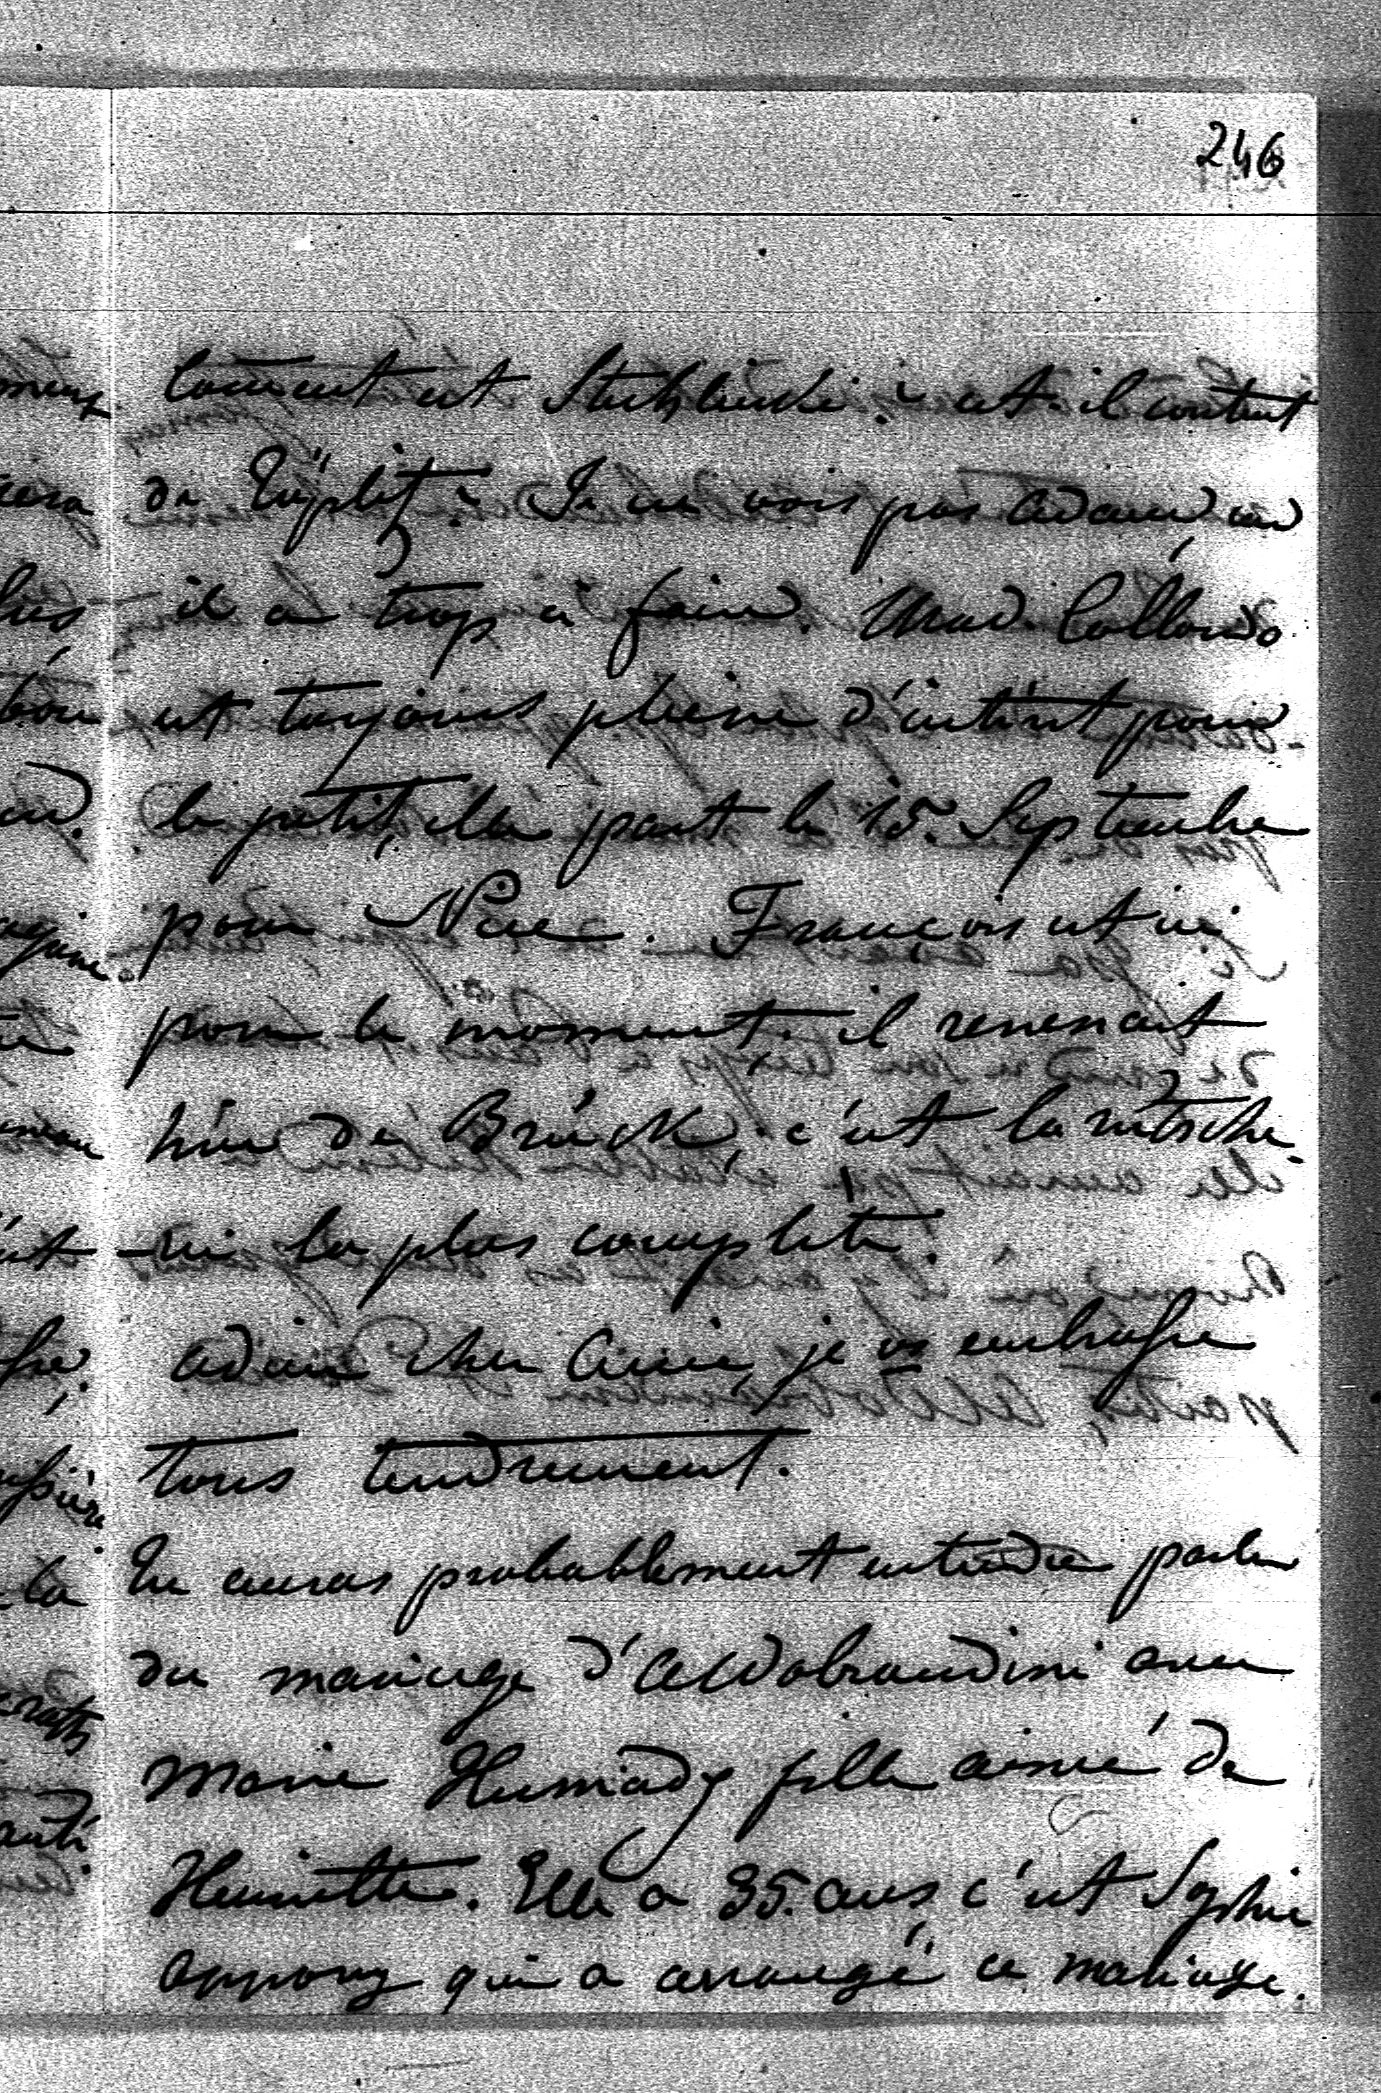 246
Coment est Stuhlinski? est-il content
de Tüplitz? Je ne vois pas Adam car
il a trop à faire. Mad. Collordo
est toujours pleine d'intérêt pour
le petit, elle part le 15. Septembre
pour Nice. François est ici
pour le moment. il revenait
hier de Brück. c'est la
la plus complète.
adieu cher Ami, je vs embrasse
tous tendrement.
Tu auras probablement entendu parler
du mariage d'Aldobrandini avec
Marie Huniady fille ainée de
Henriette. Elle a 35. ans c'est Sophie
Appony qui a arrangé ce mariage.